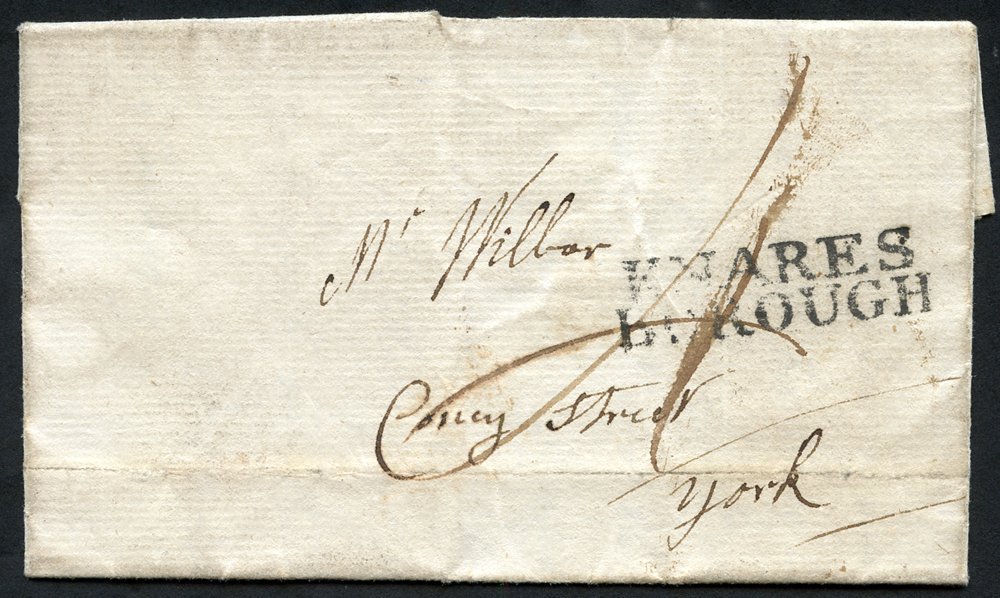 Mr Wilbor
KNARES
BOROUGH
Coney Street
York